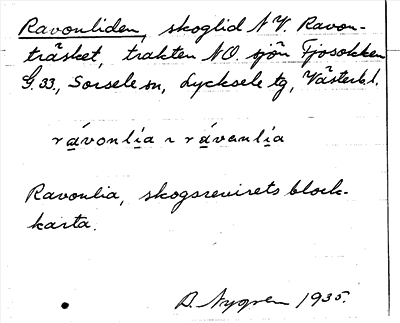 Ravonliden, skoglid N.V. Ravon-
träsket, trakten NO. sjön Fjosokken
G. 33., Sorsele sn, Lycksele tg, Västerb. l.
rávonlía ~ rávanlía
Ravonlia, skogsrevirets block-
karta.
D. Nygren 1935.